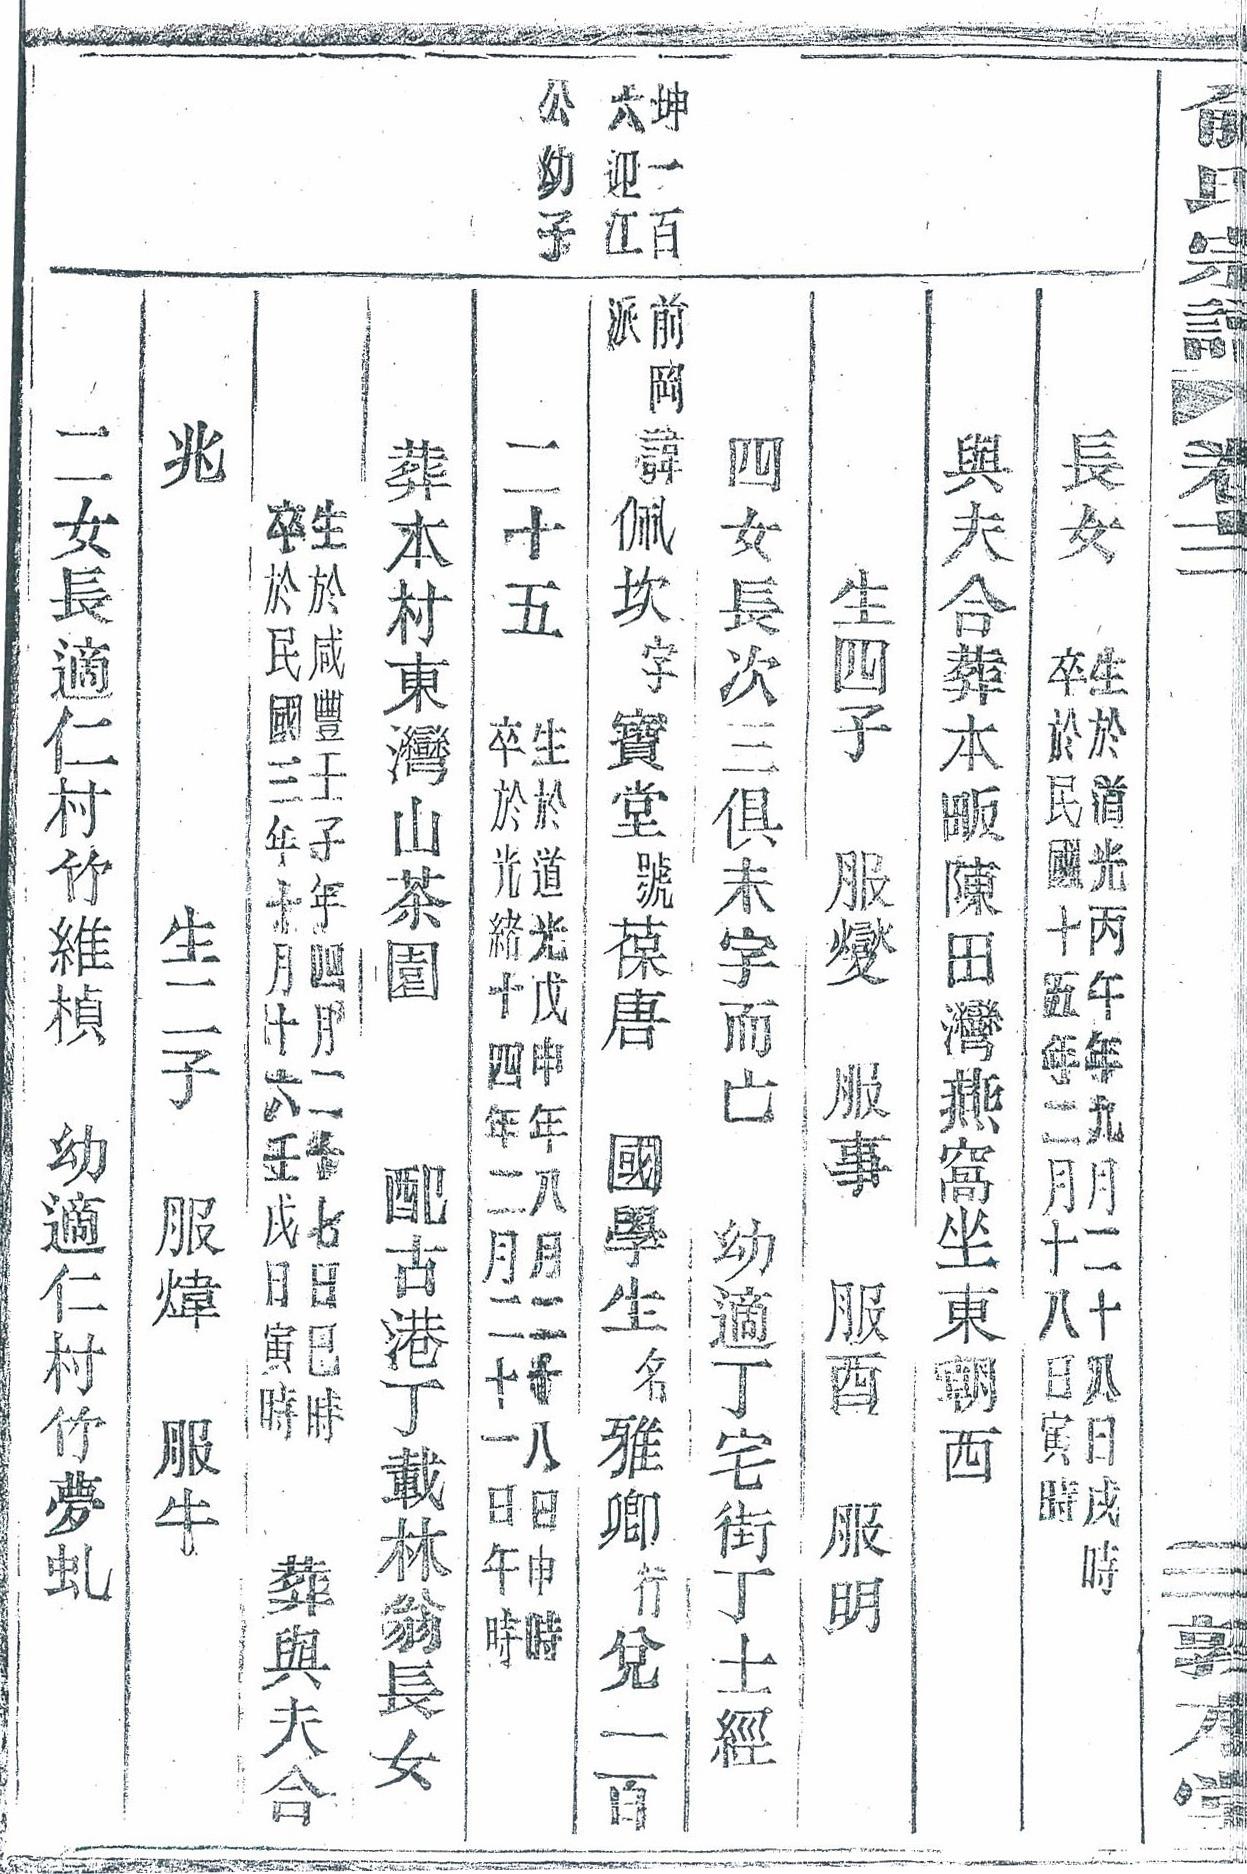 俞氏宗譜
卷三
三
敦
堂
坤一百
六迎江
公幼子
長女
生於道光丙午年九月二十八日戌時
卒於民國十五年二月十八日寅時
與夫合葬本畈陳田灣燕窩坐東朝西
生四子 服燮 服事 服酉 服明
四女長次三俱未字而亡 幼適丁宅街丁士經
前岡
派
諱佩坎字寶堂號葆唐 國學生名雅卿行兌一百
二十五
生於道光戊申年八月二十八日申時
卒於光緒十四年二月二十一日午時
葬本村東灣山茶園 配古港丁載林翁長女
生於咸豐壬子年四月二十七日巳時
卒於民國三年十月十六壬戌日寅時
葬與夫合
兆 生二子 服煒 服牛
二女長適仁村竹維楨 幼適仁村竹夢虬